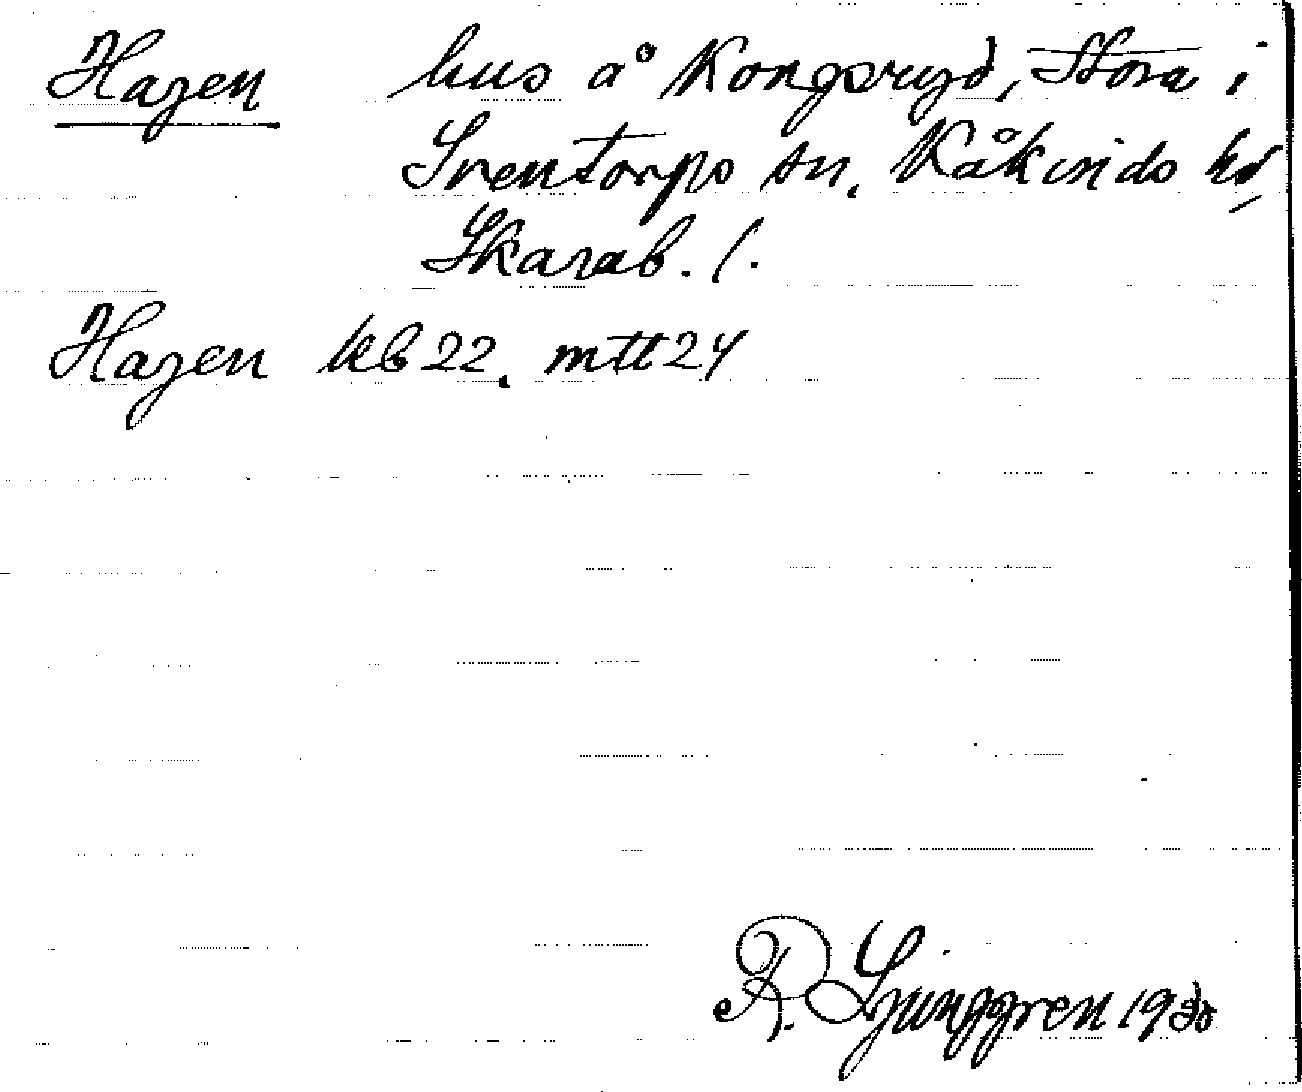 Hagen hus å Kongsryd, Stora i
Sventorps sn. Kåkinds hd
Skarab. l.
Hagen kb 22. mtl 24
R. Ljunggren 1930